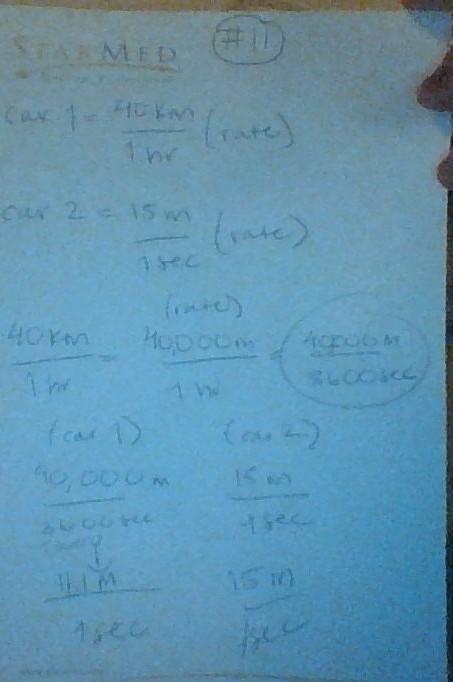 STARMED #11
car 1 = 40km / 1 hr (rate)
car 2 = 15m / 1 sec (rate)
(rate)
40km / 1 hr = 40,000m / 1 hr = 40,000m / 3600sec
(car 1) (car 2)
40,000m / 3600sec 15m / 1sec
11.1M / 1sec 15m / 1sec